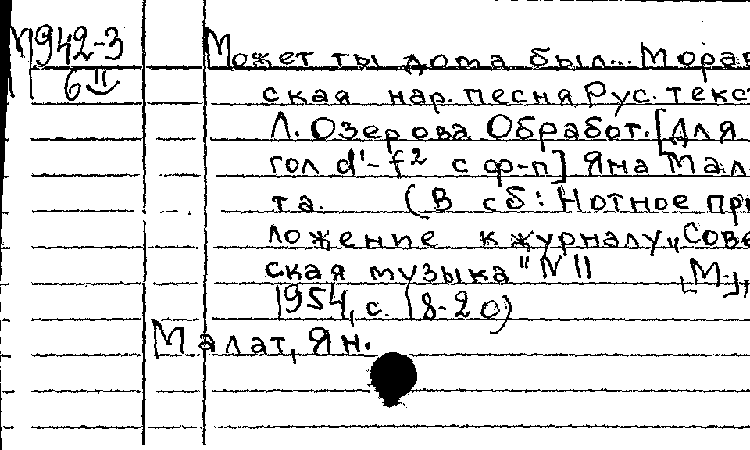 М942-3
6
Может ты дома был... Морав
ская нар. песня Рус. текс
Л. Озерова Обработ. [Для
гол d'-f² с ф-п] Яна Мал
та. (В сб: Нотное при
ложение к журналу „Сове
ская музыка" N 11 [М.],
1954, с. 18-20)
Малат, Ян.